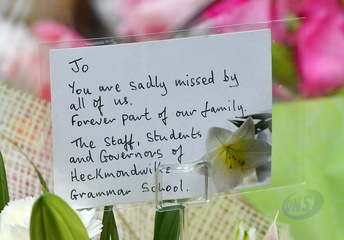 To
You are sadly missed by
all of us.
Forever part of our family.
The Staff, Students
and Governors of
Heckmondwi
Grammar School.
ONS